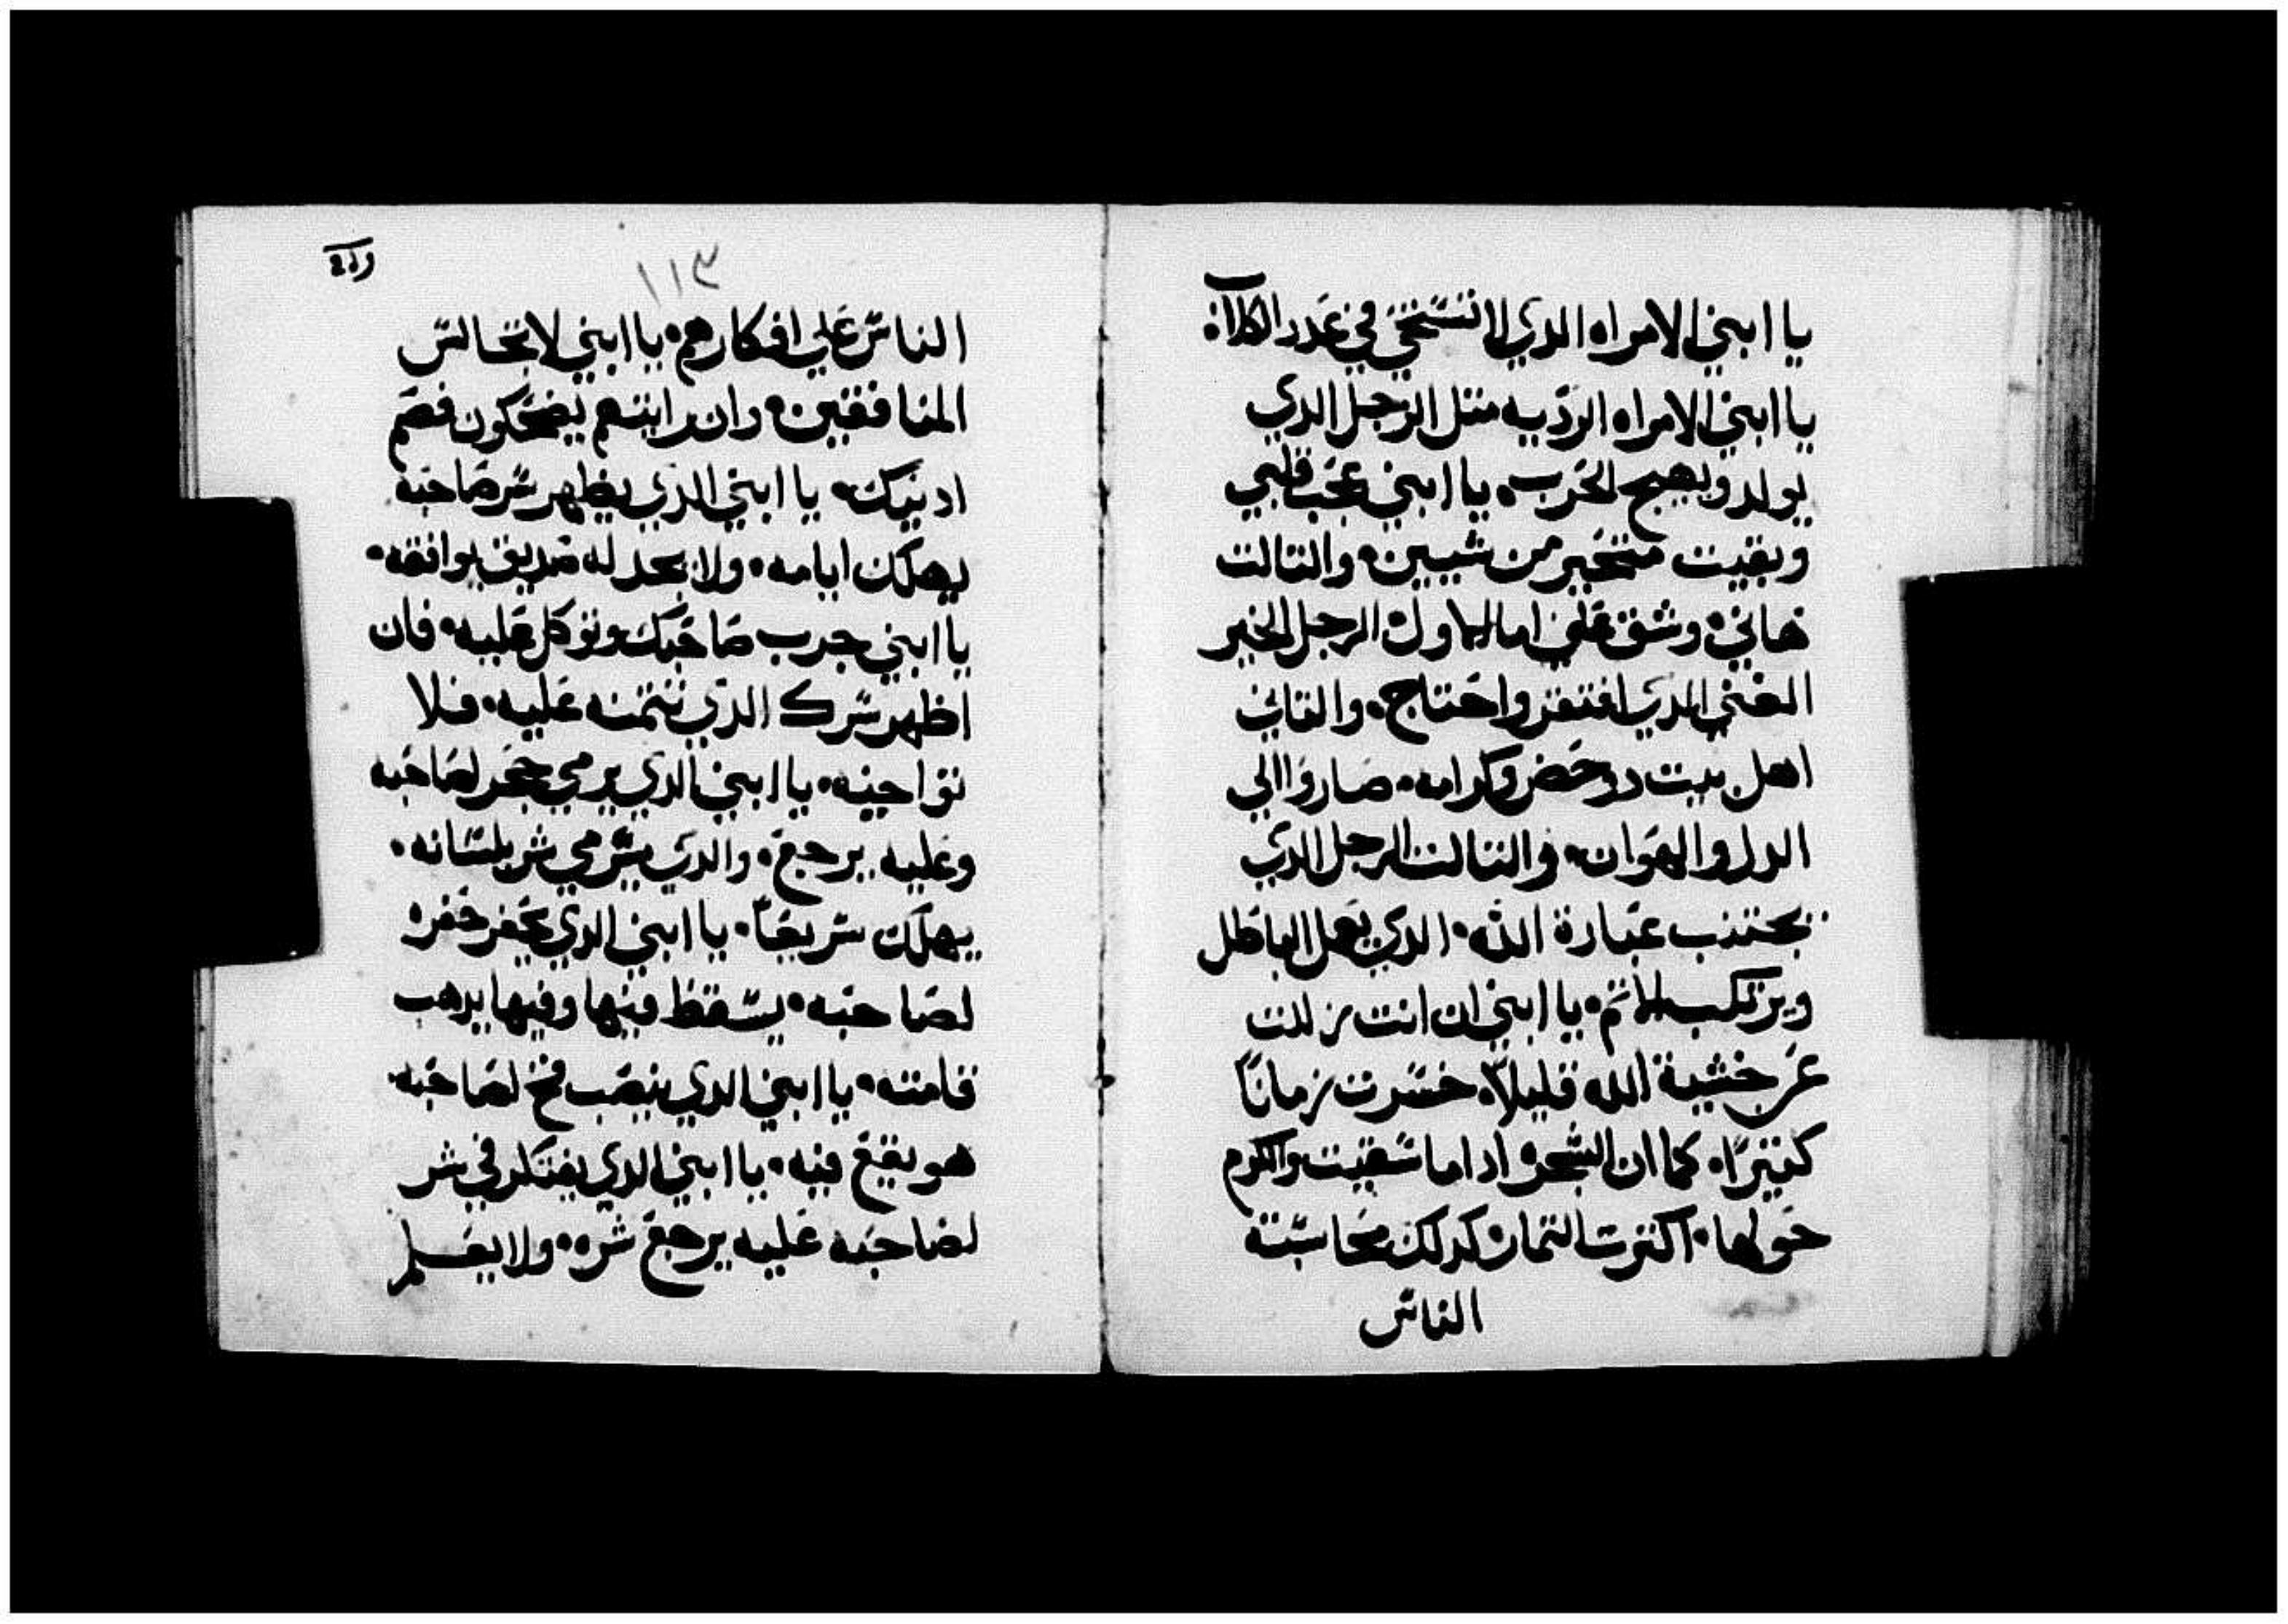 يا ابني الامراه الدي لا تستحي في عدد الكلاب
يا ابني الامراه الرديه متل الرجل الدي
يولد ويهيج الحرب، يا ابني عجب قلبي
وبقيت متحير من شيين، والتالت
هاني، وشق علي اما الاول الرجل الخير
الغني الدي افتقر واحتاج، والتاني
اهل بيت دو حضر وكرامه، صاروا الي
الدل والهوان، والتالت الرجل الدي
يجتنب عبادة الله، الدي يعمل الباطل
ويرتكب الاتم، يا ابني ان انت زللت
عن خشية الله قليلاً، خسرت زماناً
كتيراً، كما ان الشجره ادا ما سقيت والكرم
حولها، اكترت التمار، كدلك محاسبة
الناس
١١٣
الناس علي افكارهم، يا ابني لا تجالس
المنافقين، وان رايتهم يضحكون فصم
ادنيك، يا ابني الدي يظهر سر صاحبه
يهلك ايامه، ولا يجد له صديق يوافقه،
يا ابني جرب صاحبك وتوكل عليه، فان
اظهر سرك الدي تتمنه عليه، فلا
تواجيه، يا ابني الدي يرمي حجر لصاحبه
وعليه يرجع، والدي يرمي شر بلسانه،
يهلك سريعاً، يا ابني الدي يحفر حفره
لصاحبه، يسقط فيها وفيها يدهب
قامته، يا ابني الدي ينصب فخ لصاحبه
هو يقع فيه، يا ابني الدي يفتكر في شر
لصاحبه عليه يرجع شره، ولا يعلم